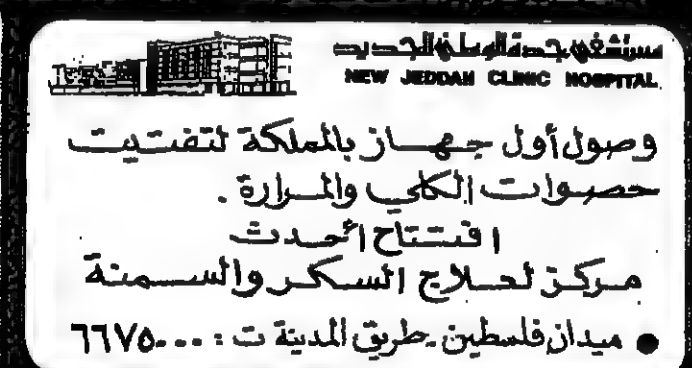 مستشفى جدة الوطني الجديد
NEW JEDDAH CLINIC HOSPITAL
وصول أول جهاز بالمملكة لتفتيت
حصوات الكلى والمرارة .
افتتاح أحدث
مركز لعلاج السكر والسمنة
● ميدان فلسطين - طريق المدينة ت : ٦٦٧٥٠٠٠